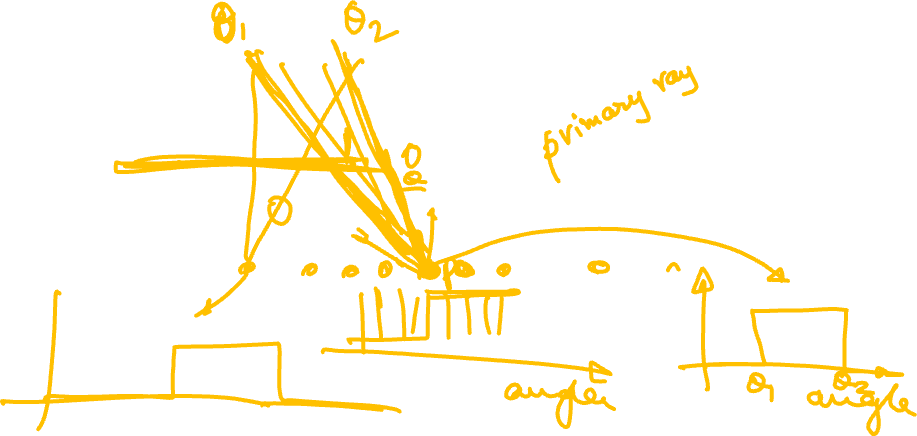 θ1 θ2
primary ray
θ
angle
θ1 θ2
angle